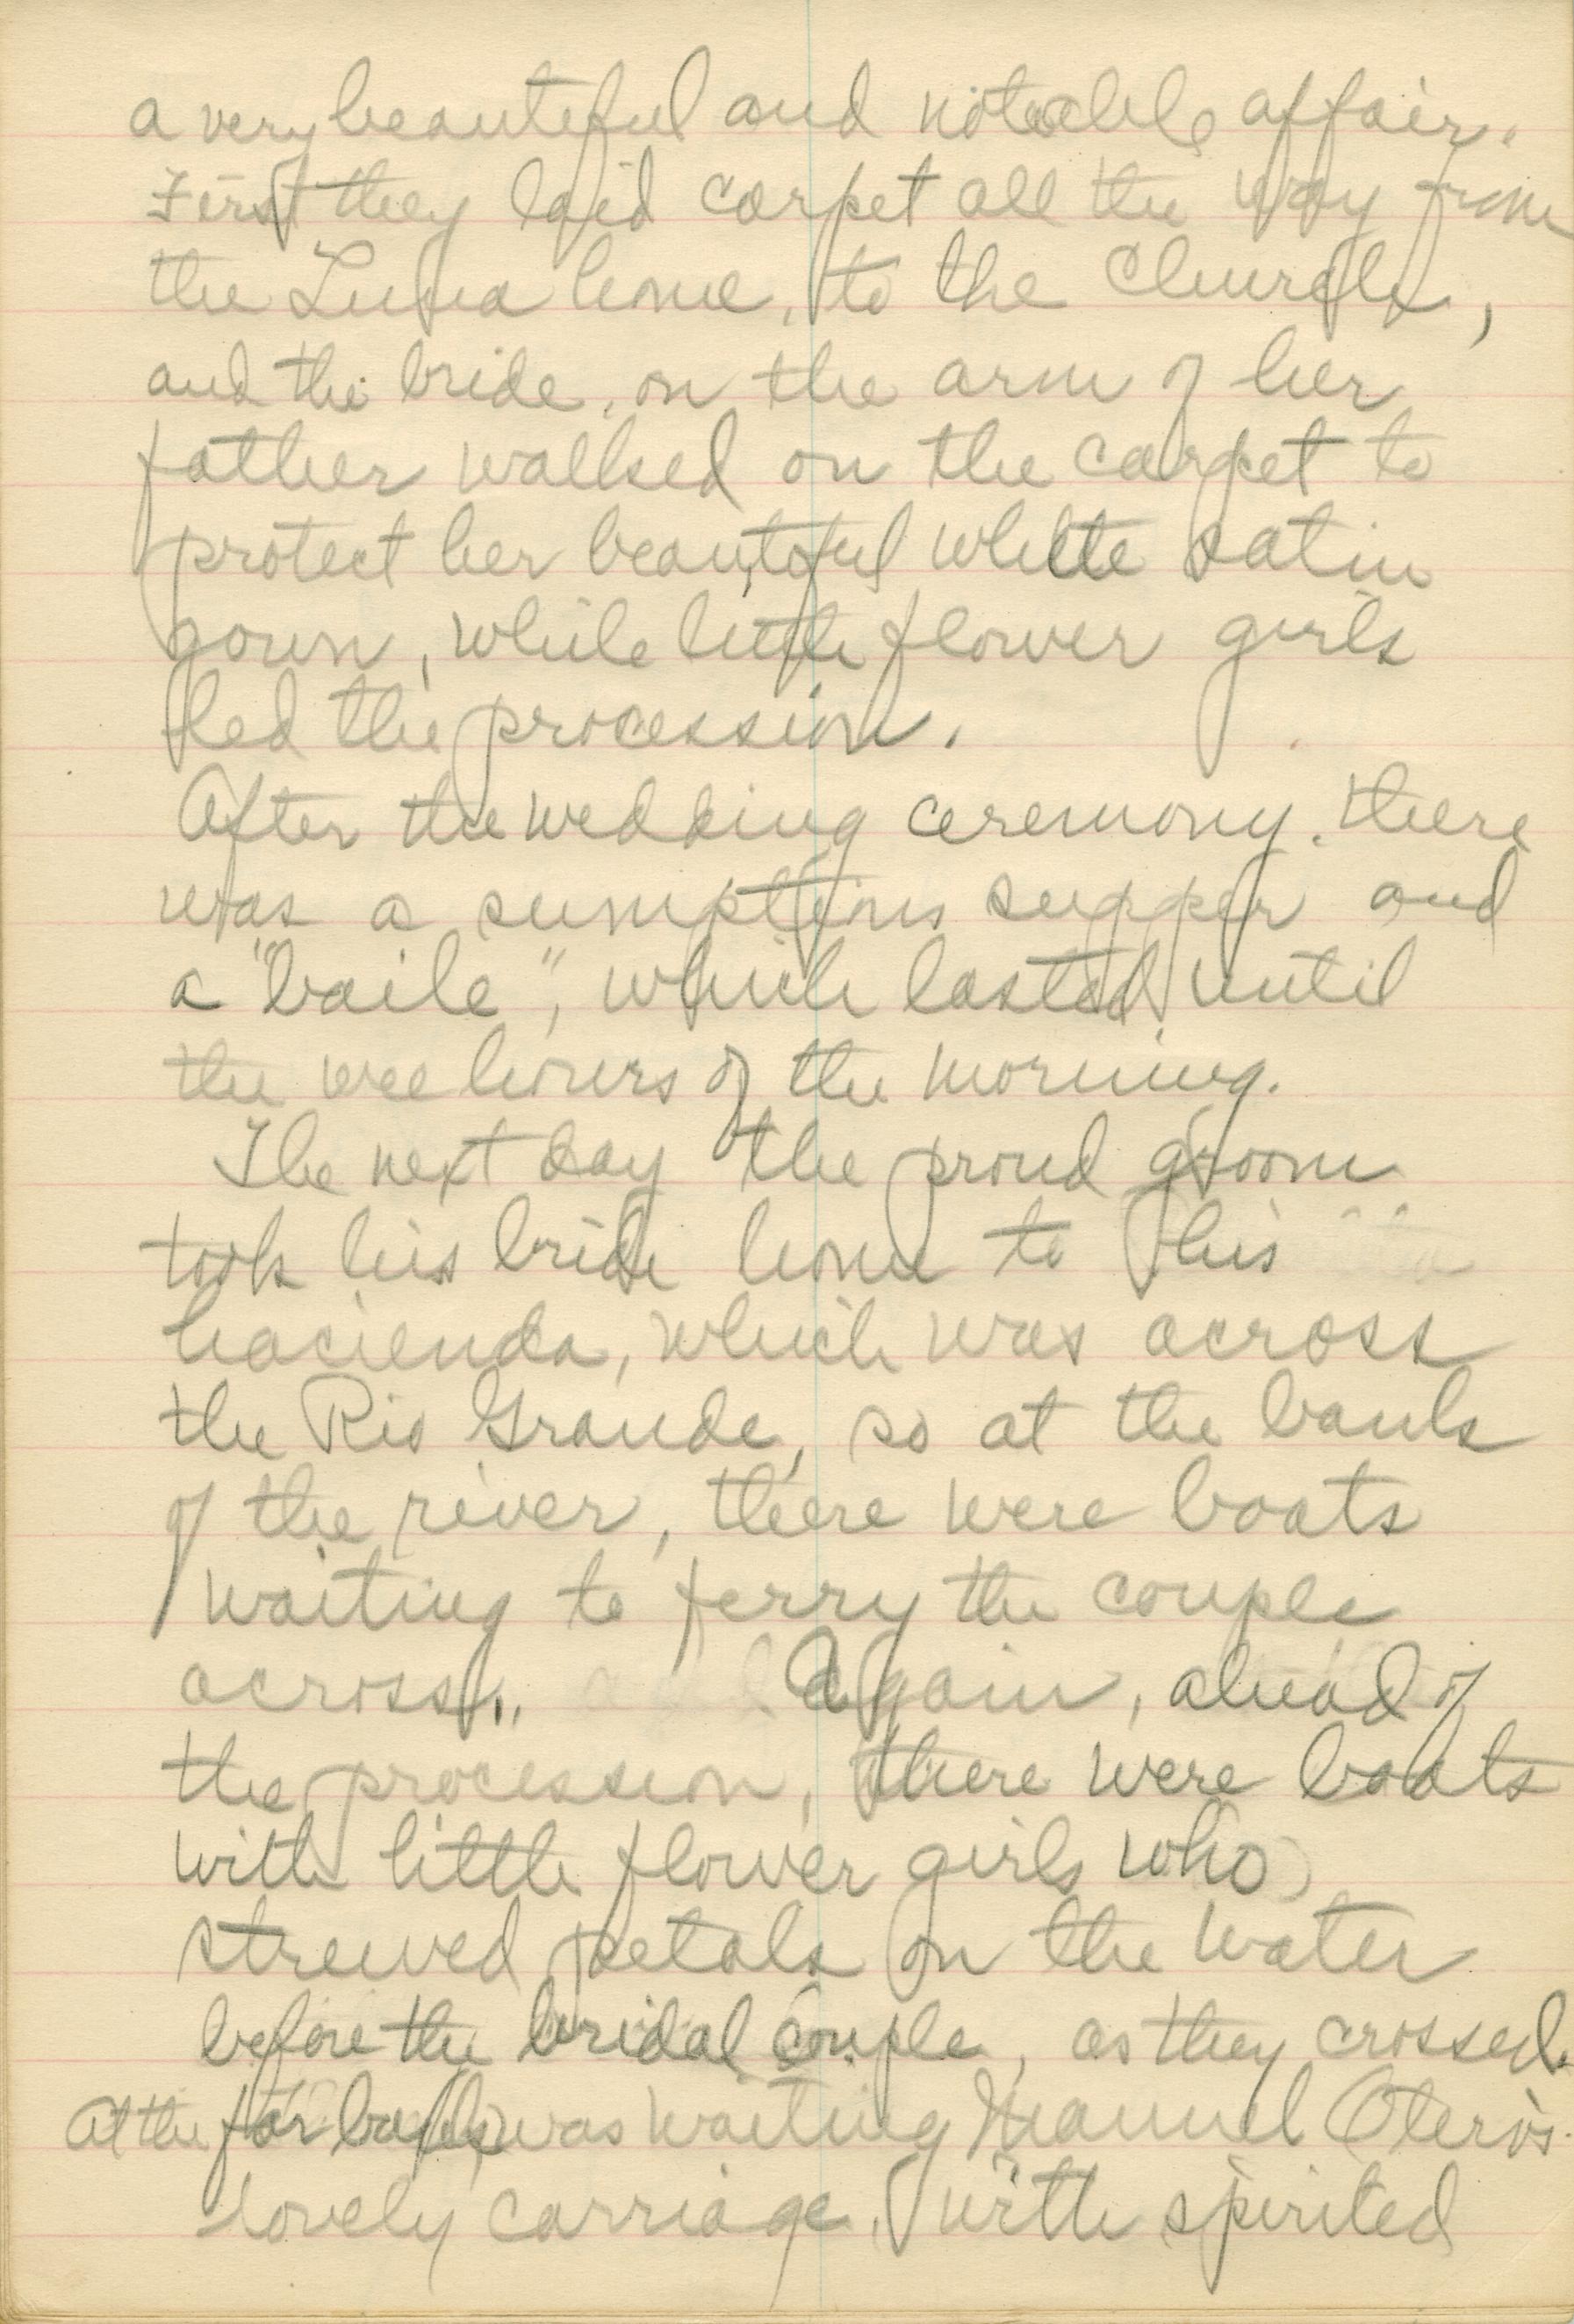 a very beautiful and notable affair.
First they laid carpet all the way from
the Luna home, to the Church,
and the bride, on the arm of her
father walked on the carpet to
protect her beautiful white satin
gown, while little flower girls
led the procession.
After the wedding ceremony, there
was a sumptious supper and
a "baile", which lasted until
the wee hours of the morning.
The next day the proud groom
took his bride home to his
hacienda, which was across
the Rio Grande, so at the bank
of the river, there were boats
waiting to ferry the couple
across. Again, ahead of
the procession, there were boats
with little flower girls who
strewed petals on the water
before the bridal couple, as they crossed.
At the far bank was waiting Manuel Otero's
lovely carriage, with spirited